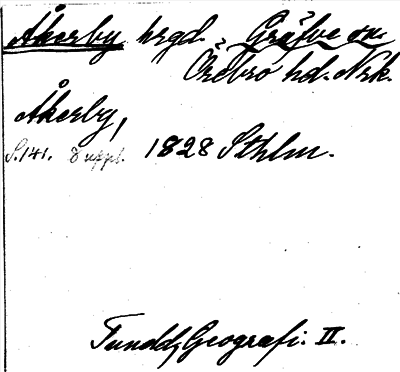 Åkerby hrgd. Gräfve sn.
Örebro hd. Nrk.
Åkerby,
S. 141. 8 uppl. 1828 Sthlm.
Tuneld, Geografi. II.